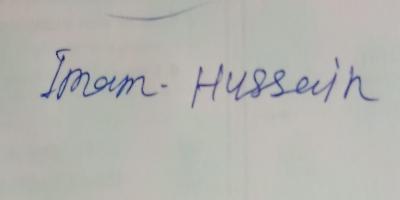 Imam- Hussain